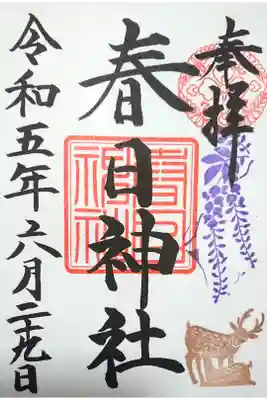 奉拝
春日神社
令和五年六月二十九日
春日神社